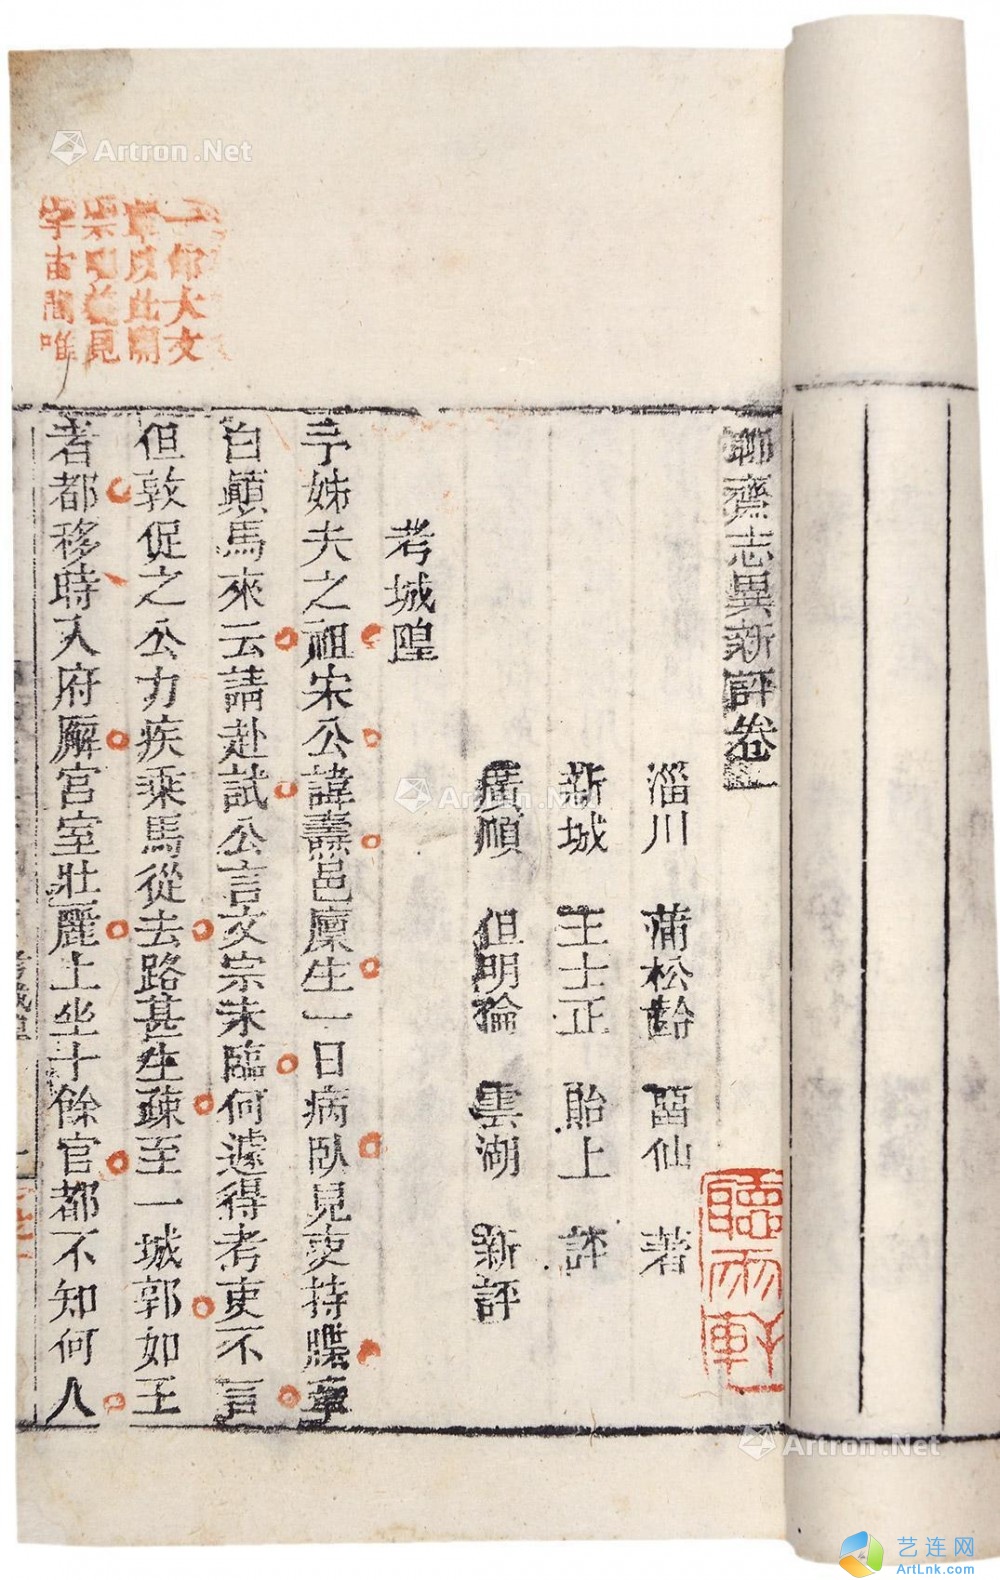 聊齋志異新評卷一
淄川 蒲松齡 畱仙 著
新城 王士正 貽上 評
廣順 但明倫 雲湖 新評
考城隍
予姊夫之祖宋公諱燾邑廩生一日病臥見吏持牒牽
白顛馬來云請赴試公言文宗未臨何遽得考吏不言
但敦促之公力疾乘馬從去路甚生疎至一城郭如王
者都移時入府廨宮室壯麗上坐十餘官都不知何人
一部大文
章以此開
宗明義見
宇宙間唯
聽雨軒
考城隍
Artron.Net
Artron.Net
Artron.Net
艺连网
ArtLnk.com